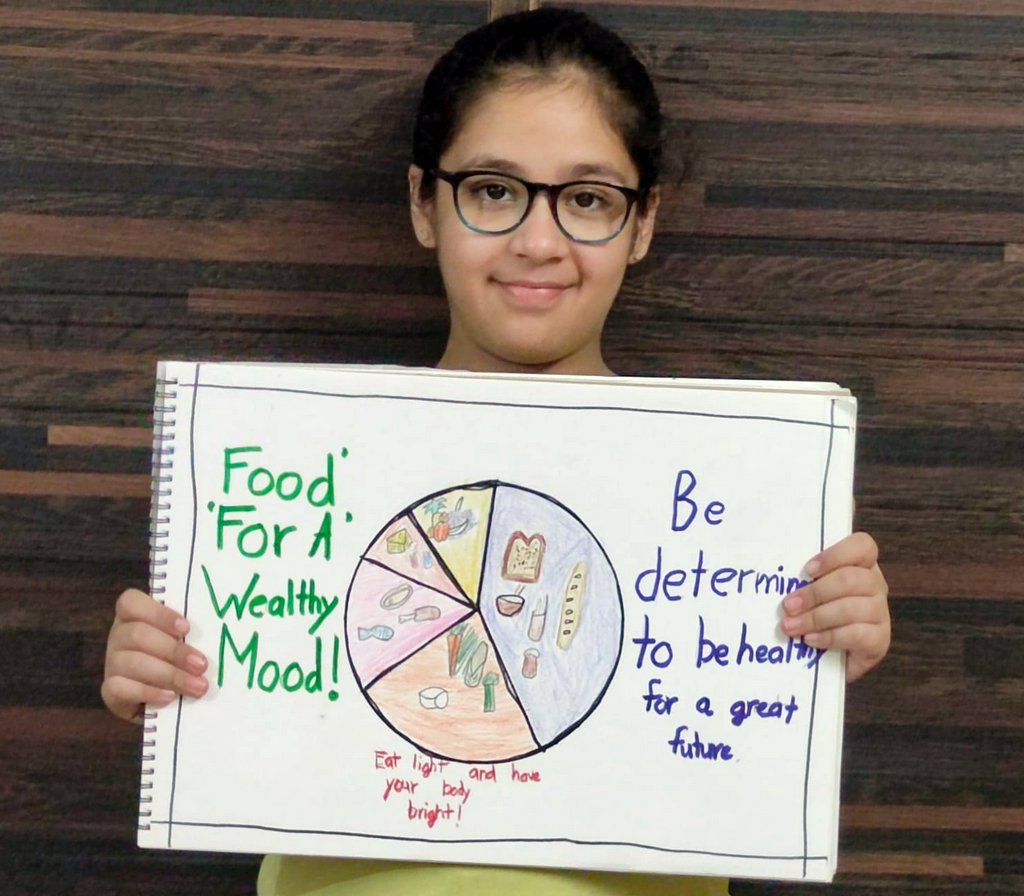 Food'
'For A'
Wealthy
Mood!
Be
determin
to be healthy
for a great
future.
Eat light and have
your body
bright!